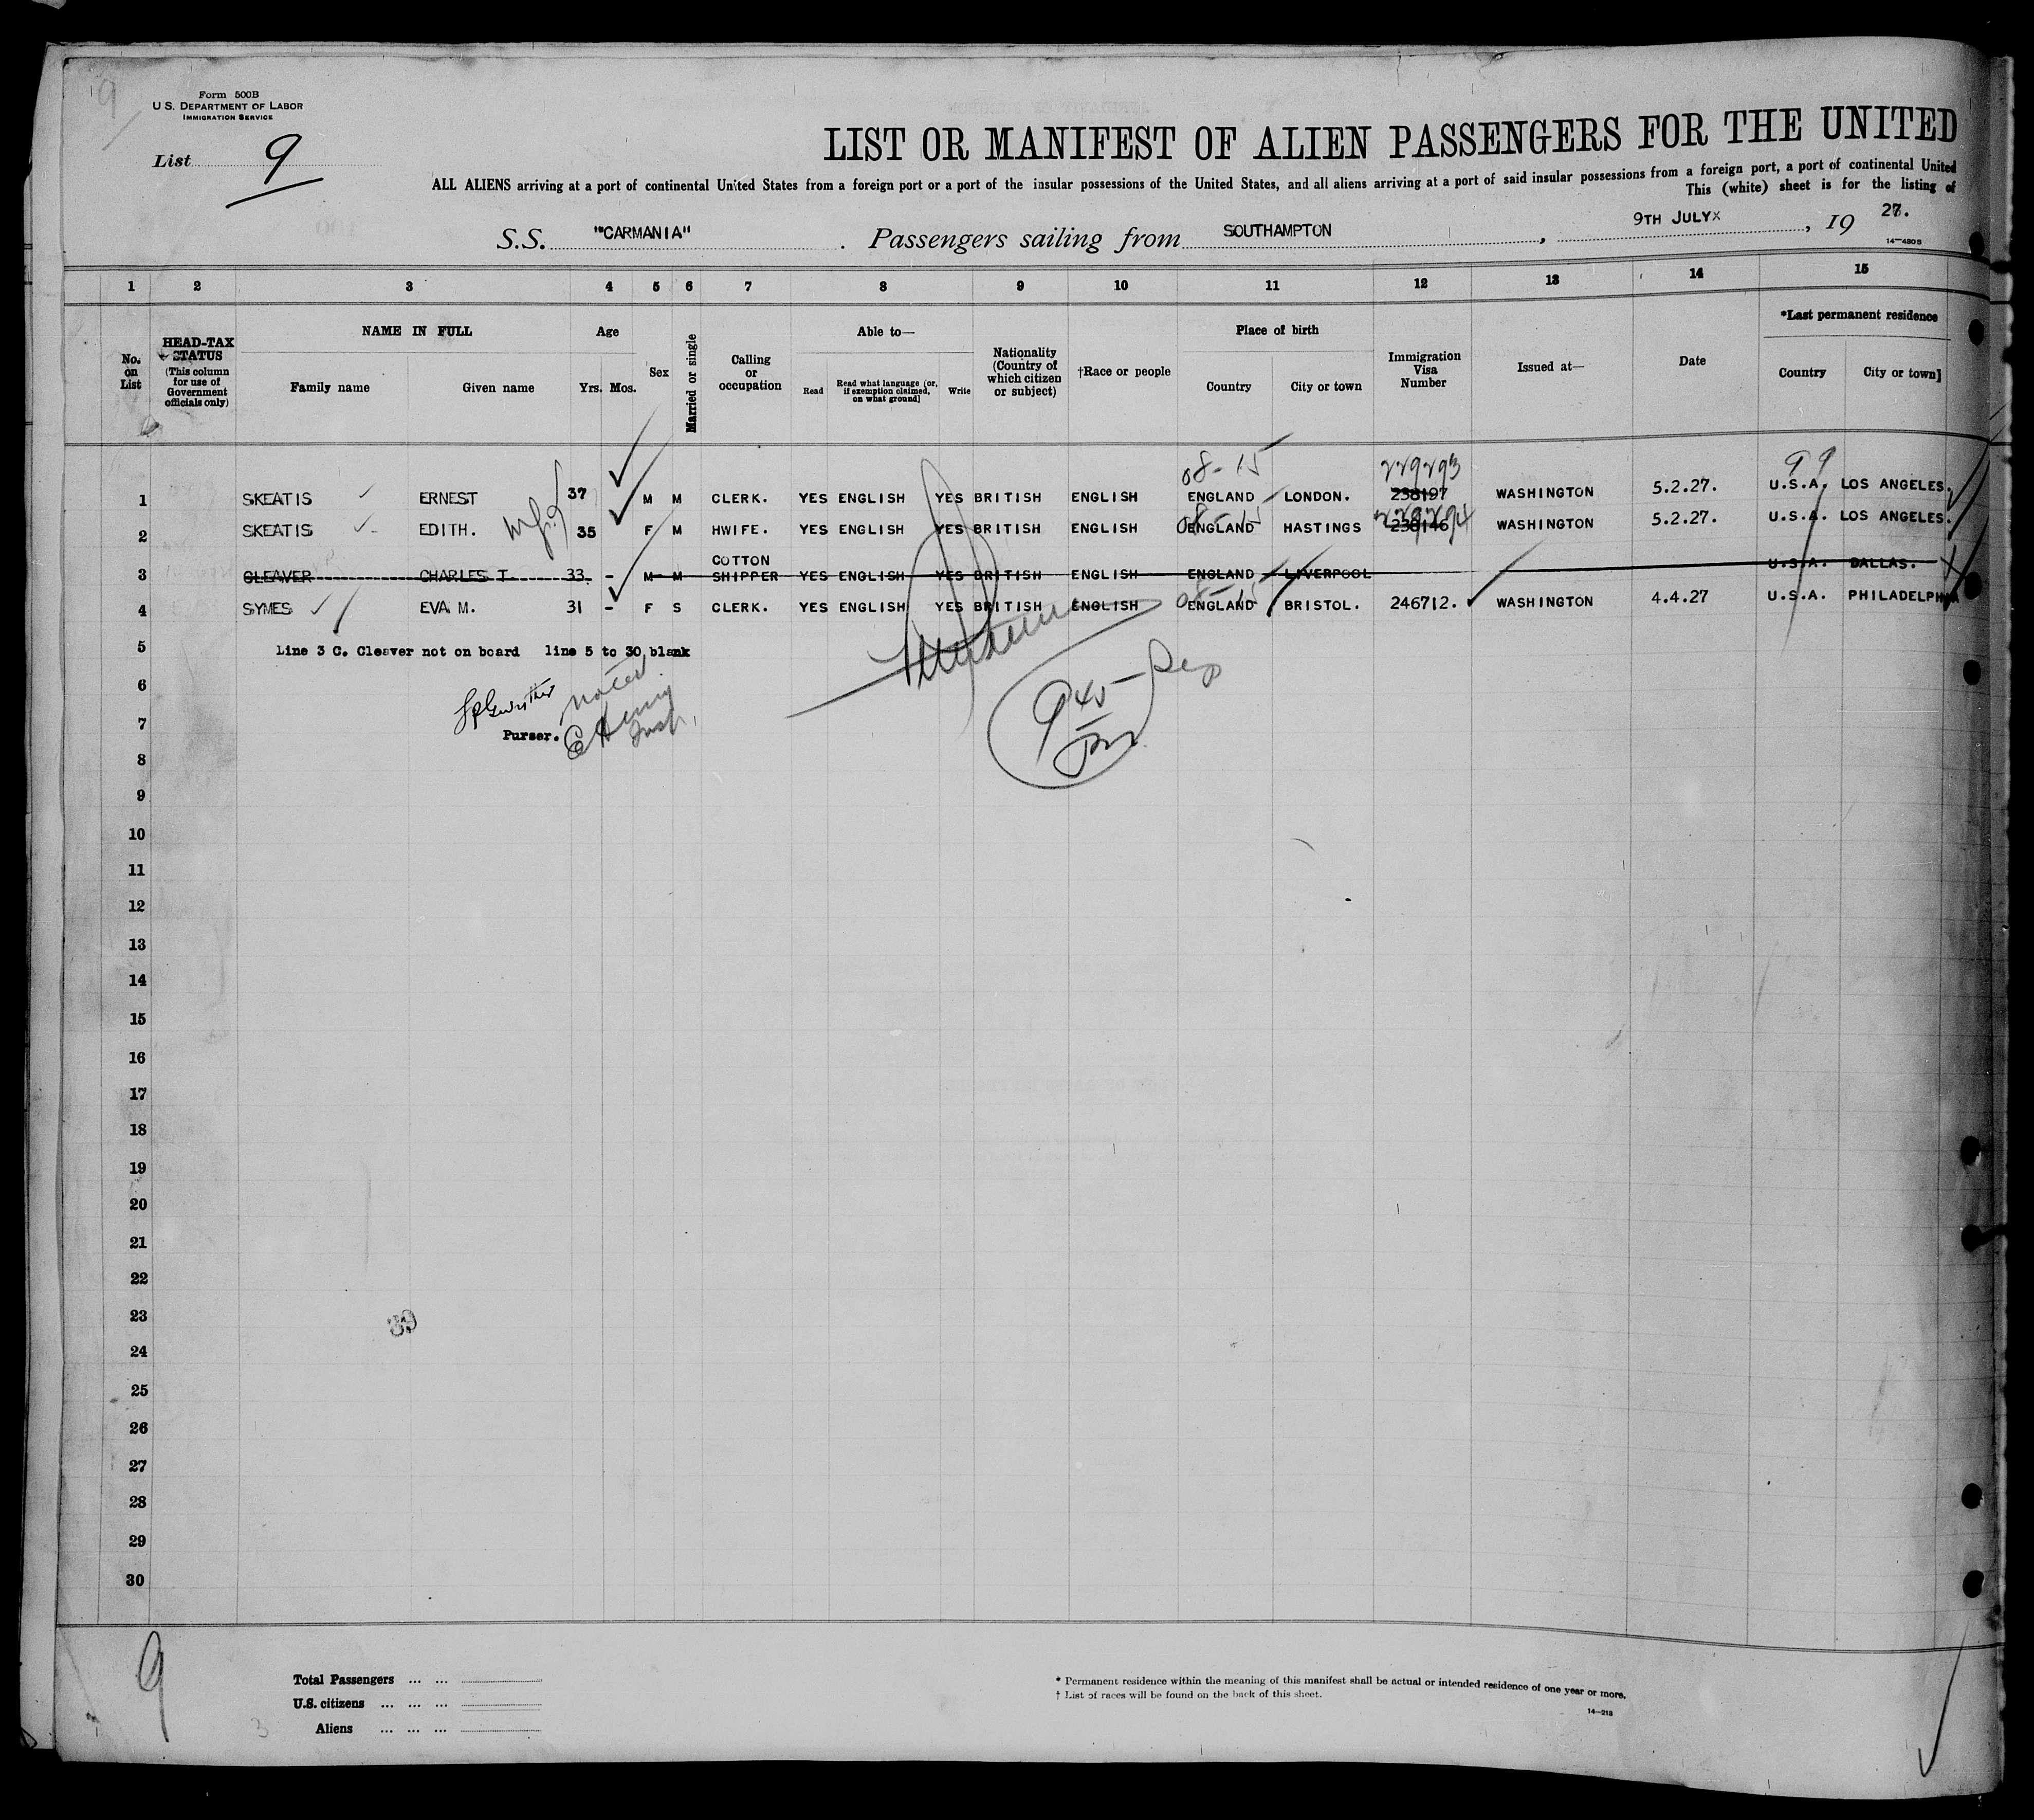 9
Form 500B
U S. DEPARTMENT OF LABOR
IMMIGRATION SERVICE
List 9
LIST OR MANIFEST OF ALIEN PASSENGERS FOR THE UNITED
ALL ALIENS arriving at a port of continental United States from a foreign port or a port of the insular possessions of the United States, and all aliens arriving at a port of said insular possessions from a foreign port, a port of continental United
This (white) sheet is for the listing of
S.S. "CARMANIA" . Passengers sailing from SOUTHAMPTON , 9TH JULYX , 19 27.
14—480B
1 2 3 4 5 6 7 8 9 10 11 12 13 14 15
No. on List
HEAD-TAX STATUS (This column for use of Government officials only)
NAME IN FULL
Family name Given name
Age
Yrs. Mos.
Sex
Married or single
Calling or occupation
Able to—
Read Read what language (or, if exemption claimed, on what ground) Write
Nationality (Country of which citizen or subject)
†Race or people
Place of birth
Country City or town
Immigration Visa Number
Issued at—
Date
*Last permanent residence
Country City or town]
08-15 229293 99
1 SKEATIS ERNEST 37 M M CLERK. YES ENGLISH YES BRITISH ENGLISH ENGLAND LONDON. 238197 WASHINGTON 5.2.27. U.S.A. LOS ANGELES.
08-15 229294
2 SKEATIS EDITH. 35 F M HWIFE. YES ENGLISH YES BRITISH ENGLISH ENGLAND HASTINGS 238146 WASHINGTON 5.2.27. U.S.A. LOS ANGELES.
3 CLEAVER CHARLES T 33 - M M COTTON SHIPPER YES ENGLISH YES BRITISH ENGLISH ENGLAND LIVERPOOL U.S.A. DALLAS.
08-15
4 SYMES EVA M. 31 - F S CLERK. YES ENGLISH YES BRITISH ENGLISH ENGLAND BRISTOL. 246712. WASHINGTON 4.4.27 U.S.A. PHILADELPHIA
5 Line 3 C. Cleaver not on board line 5 to 30 blank
6 noted
7 Purser.
Insp.
945
8
9
10
11
12
13
14
15
16
17
18
19
20
21
22
23
39
24
25
26
27
28
29
30
9
Total Passengers ... ...
U.S. citizens ... ... ...
3 Aliens ... ... ...
* Permanent residence within the meaning of this manifest shall be actual or intended residence of one year or more.
† List of races will be found on the back of this sheet.
14—213